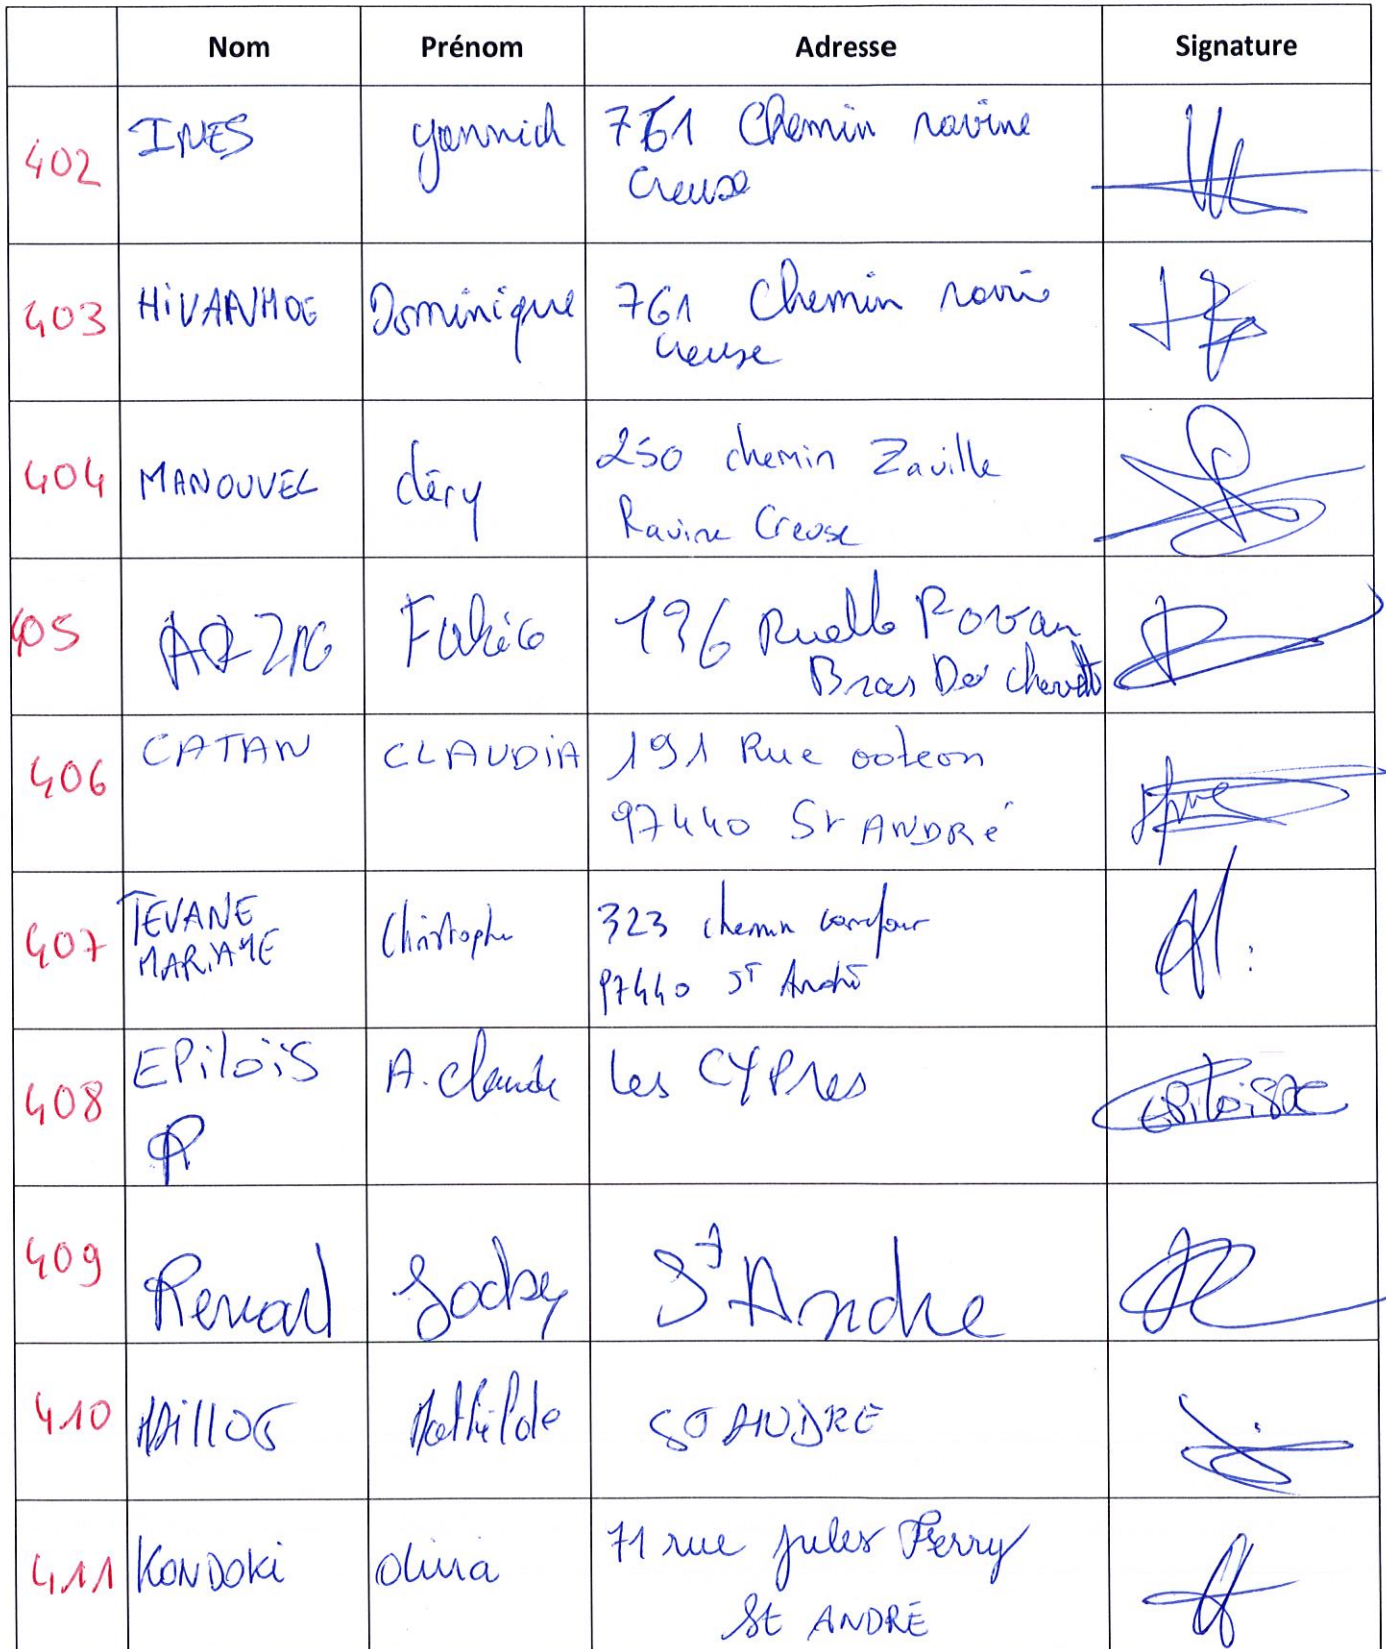 Nom Prénom Adresse Signature
402 INES yannich 761 Chemin ravine
Creuse
403 HiVANHOE Dominique 761 Chemin
Creuse
404 MANOUVEL 250 chemin Zaville
Ravine Creuse
405 136 Ruelle
Bras Des Chevrettes
406 CATAN CLAUDiA 191 Rue
97440 St ANDRé
407 TEVANE Christophe 323 chemin carrefour
MARIAYE 97440 ST André
408 EPiloïS A. Claude Les CYPRes
409 Renard St Andre
410 Mathilde ST ANDRE
411 KONDOKi olivia 71 rue jules Ferry
St ANDRÉ